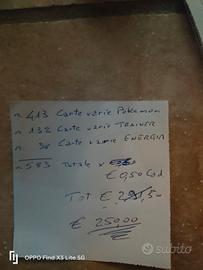 n. 413 Carte varie Pokemon
n. 132 Carte varie TRAINER
n. 38 Carte varie ENERGIA
n. 583 Totale x
€ 0,50 Cad.
Tot € 291,50
€ 250,00
OPPO Find X3 Lite 5G
subito